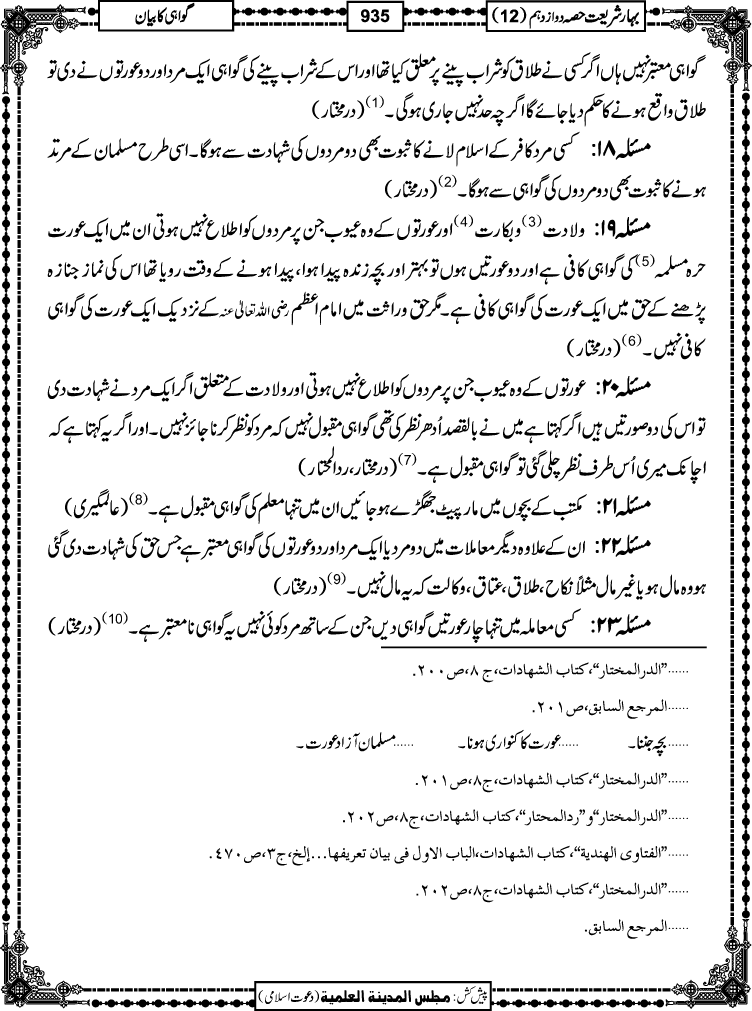 بہارِ شریعت حصہ دوازدہم (12)
935
گواہی کا بیان
گواہی معتبر نہیں ہاں اگر کسی نے طلاق کو شراب پینے پر معلق کیا تھا اور اس کے شراب پینے کی گواہی ایک مرد اور دو عورتوں نے دی تو
طلاق واقع ہونے کا حکم دیا جائے گا اگرچہ حد نہیں جاری ہوگی۔ (1) (درمختار)
مسئلہ ۱۸: کسی مرد کافر کے اسلام لانے کا ثبوت بھی دو مردوں کی شہادت سے ہوگا۔ اسی طرح مسلمان کے مرتد
ہونے کا ثبوت بھی دو مردوں کی گواہی سے ہوگا۔ (2) (درمختار)
مسئلہ ۱۹: ولادت (3) وبکارت (4) اور عورتوں کے وہ عیوب جن پر مردوں کو اطلاع نہیں ہوتی ان میں ایک عورت
حرہ مسلمہ (5) کی گواہی کافی ہے اور دو عورتیں ہوں تو بہتر اور بچہ زندہ پیدا ہوا، پیدا ہونے کے وقت رویا تھا اس کی نماز جنازہ
پڑھنے کے حق میں ایک عورت کی گواہی کافی ہے۔ مگر حق وراثت میں امام اعظم رضی اللہ تعالیٰ عنہ کے نزدیک ایک عورت کی گواہی
کافی نہیں۔ (6) (درمختار)
مسئلہ ۲۰: عورتوں کے وہ عیوب جن پر مردوں کو اطلاع نہیں ہوتی اور ولادت کے متعلق اگر ایک مرد نے شہادت دی
تو اس کی دو صورتیں ہیں اگر کہتا ہے میں نے بالقصد اُدھر نظر کی تھی گواہی مقبول نہیں کہ مرد کو نظر کرنا جائز نہیں۔ اور اگر یہ کہتا ہے کہ
اچانک میری اُس طرف نظر چلی گئی تو گواہی مقبول ہے۔ (7) (درمختار، ردالمحتار)
مسئلہ ۲۱: مکتب کے بچوں میں مار پیٹ جھگڑے ہو جائیں ان میں تنہا معلم کی گواہی مقبول ہے۔ (8) (عالمگیری)
مسئلہ ۲۲: ان کے علاوہ دیگر معاملات میں دو مرد یا ایک مرد اور دو عورتوں کی گواہی معتبر ہے جس حق کی شہادت دی گئی
ہو وہ مال ہو یا غیر مال مثلاً نکاح، طلاق، عتاق، وکالت کہ یہ مال نہیں۔ (9) (درمختار)
مسئلہ ۲۳: کسی معاملہ میں تنہا چار عورتیں گواہی دیں جن کے ساتھ مرد کوئی نہیں یہ گواہی نامعتبر ہے۔ (10) (درمختار)
......”الدرالمختار“، کتاب الشھادات، ج ۸، ص ۲۰۰.
......المرجع السابق، ص ۲۰۱.
......بچہ جننا۔ ......عورت کا کنواری ہونا۔ ......مسلمان آزاد عورت۔
......”الدرالمختار“، کتاب الشھادات، ج ۸، ص ۲۰۱.
......”الدرالمختار“ و ”ردالمحتار“، کتاب الشھادات، ج ۸، ص ۲۰۲.
......”الفتاوی الھندیة“، کتاب الشھادات، الباب الاول فی بیان تعریفھا...إلخ، ج ۳، ص ٤۷۰.
......”الدرالمختار“، کتاب الشھادات، ج ۸، ص ۲۰۲.
......المرجع السابق.
پیش کش: مجلس المدینة العلمیة (دعوت اسلامی)